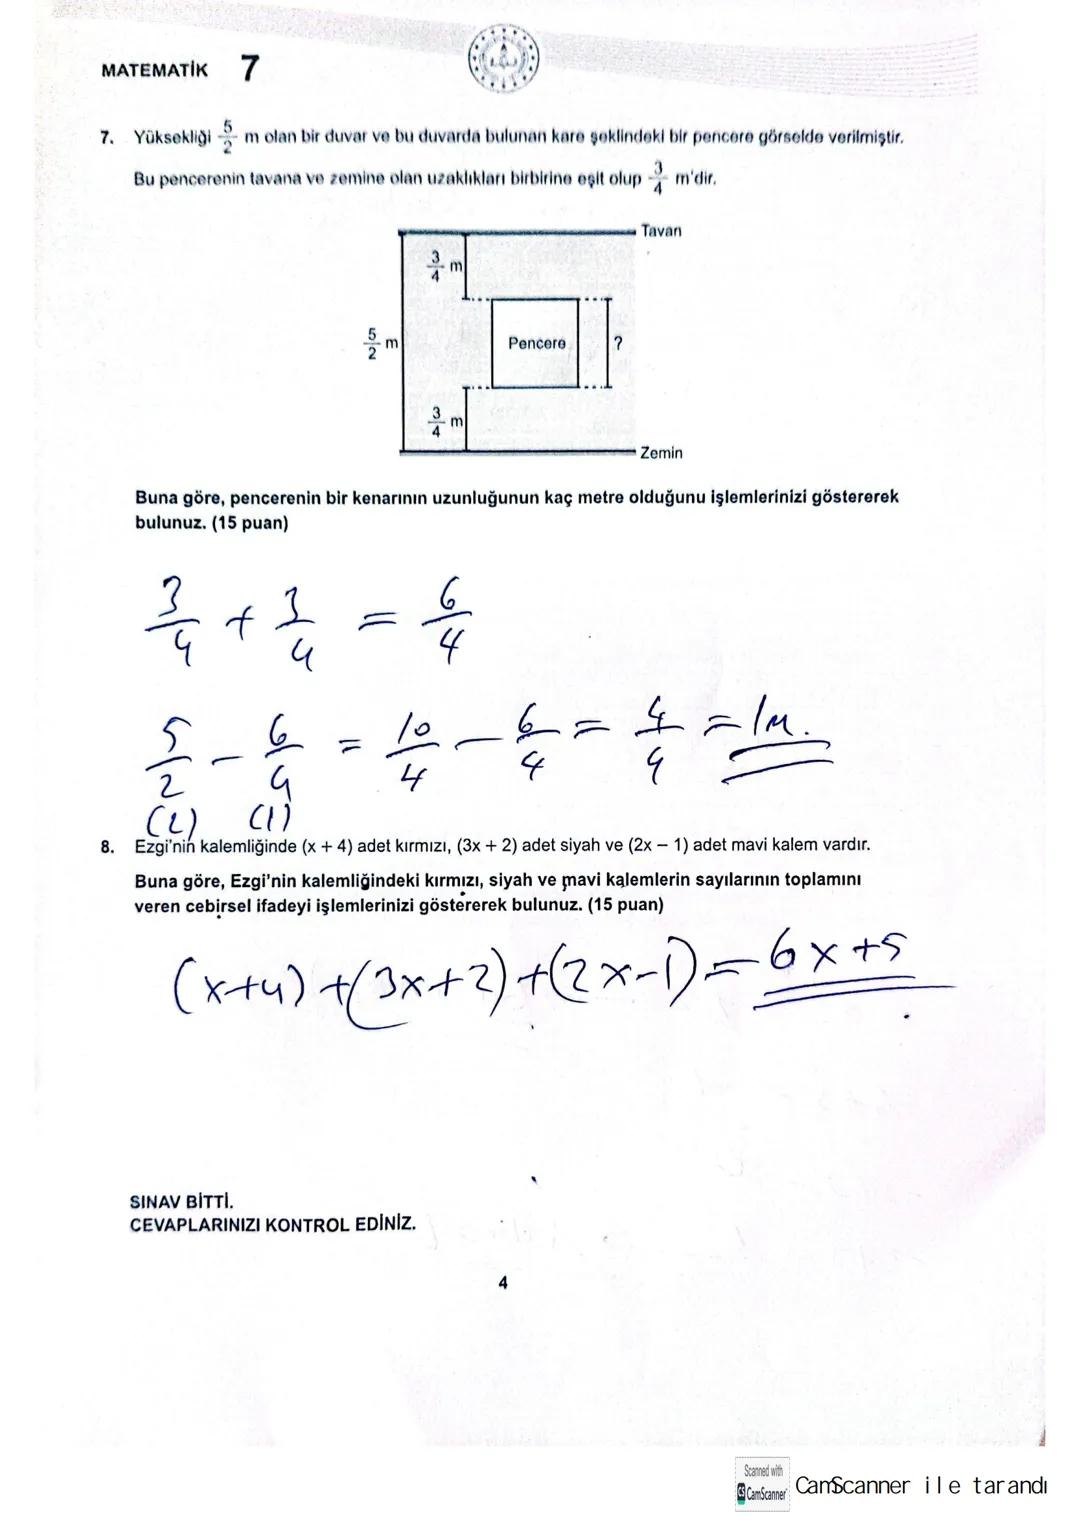 MATEMATİK 7
7. Yüksekliği 5/2 m olan bir duvar ve bu duvarda bulunan kare şeklindeki bir pencere görselde verilmiştir.
Bu pencerenin tavana ve zemine olan uzaklıkları birbirine eşit olup 3/4 m'dir.
Tavan
3/4 m
5/2 m
Pencere ?
3/4 m
Zemin
Buna göre, pencerenin bir kenarının uzunluğunun kaç metre olduğunu işlemlerinizi göstererek
bulunuz. (15 puan)
3/4 + 3/4 = 6/4
5/2 - 6/4 = 10/4 - 6/4 = 4/4 = 1m.
(2) (1)
8. Ezgi'nin kalemliğinde (x + 4) adet kırmızı, (3x + 2) adet siyah ve (2x – 1) adet mavi kalem vardır.
Buna göre, Ezgi'nin kalemliğindeki kırmızı, siyah ve mavi kalemlerin sayılarının toplamını
veren cebirsel ifadeyi işlemlerinizi göstererek bulunuz. (15 puan)
(x+4)+(3x+2)+(2x-1)=6x+5
SINAV BİTTİ.
CEVAPLARINIZI KONTROL EDİNİZ.
4
Scanned with
CS CamScanner
CamScanner ile tarandı